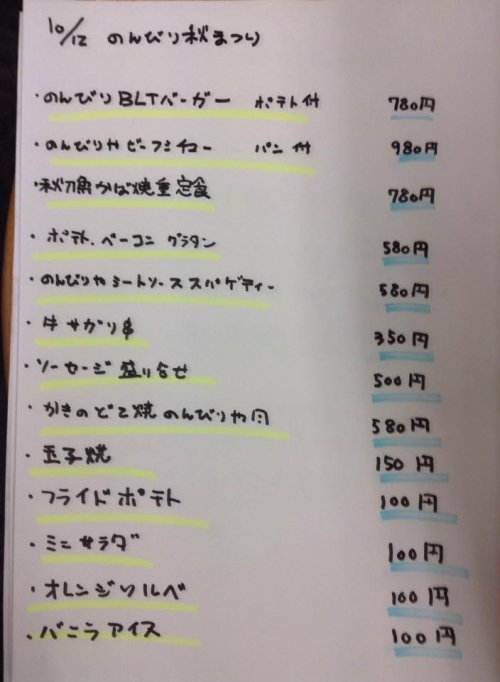 10/12 のんびり秋まつり
・のんびりBLTバーガー ポテト付 780円
・のんびりやビーフシチュー パン付 980円
・秋刀魚かば焼重定食 780円
・ポテト、ベーコン グラタン 580円
・のんびりやミートソーススパゲティー 580円
・牛サガリ串 350円
・ソーセージ盛り合せ 500円
・かきのどて焼のんびりや風 580円
・玉子焼 150円
・フライドポテト 100円
・ミニサラダ 100円
・オレンジソルベ 100円
・バニラアイス 100円